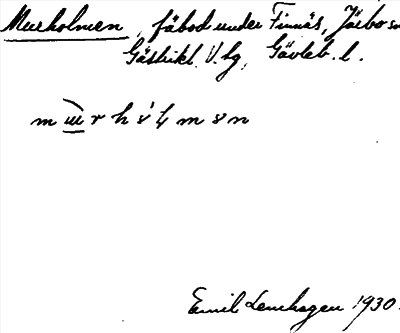 Murholmen, fäbod under Finnäs, Järbo sn
Gästrikl. V. hg, Gävleb. l.
Emil Lenhagen 1930.